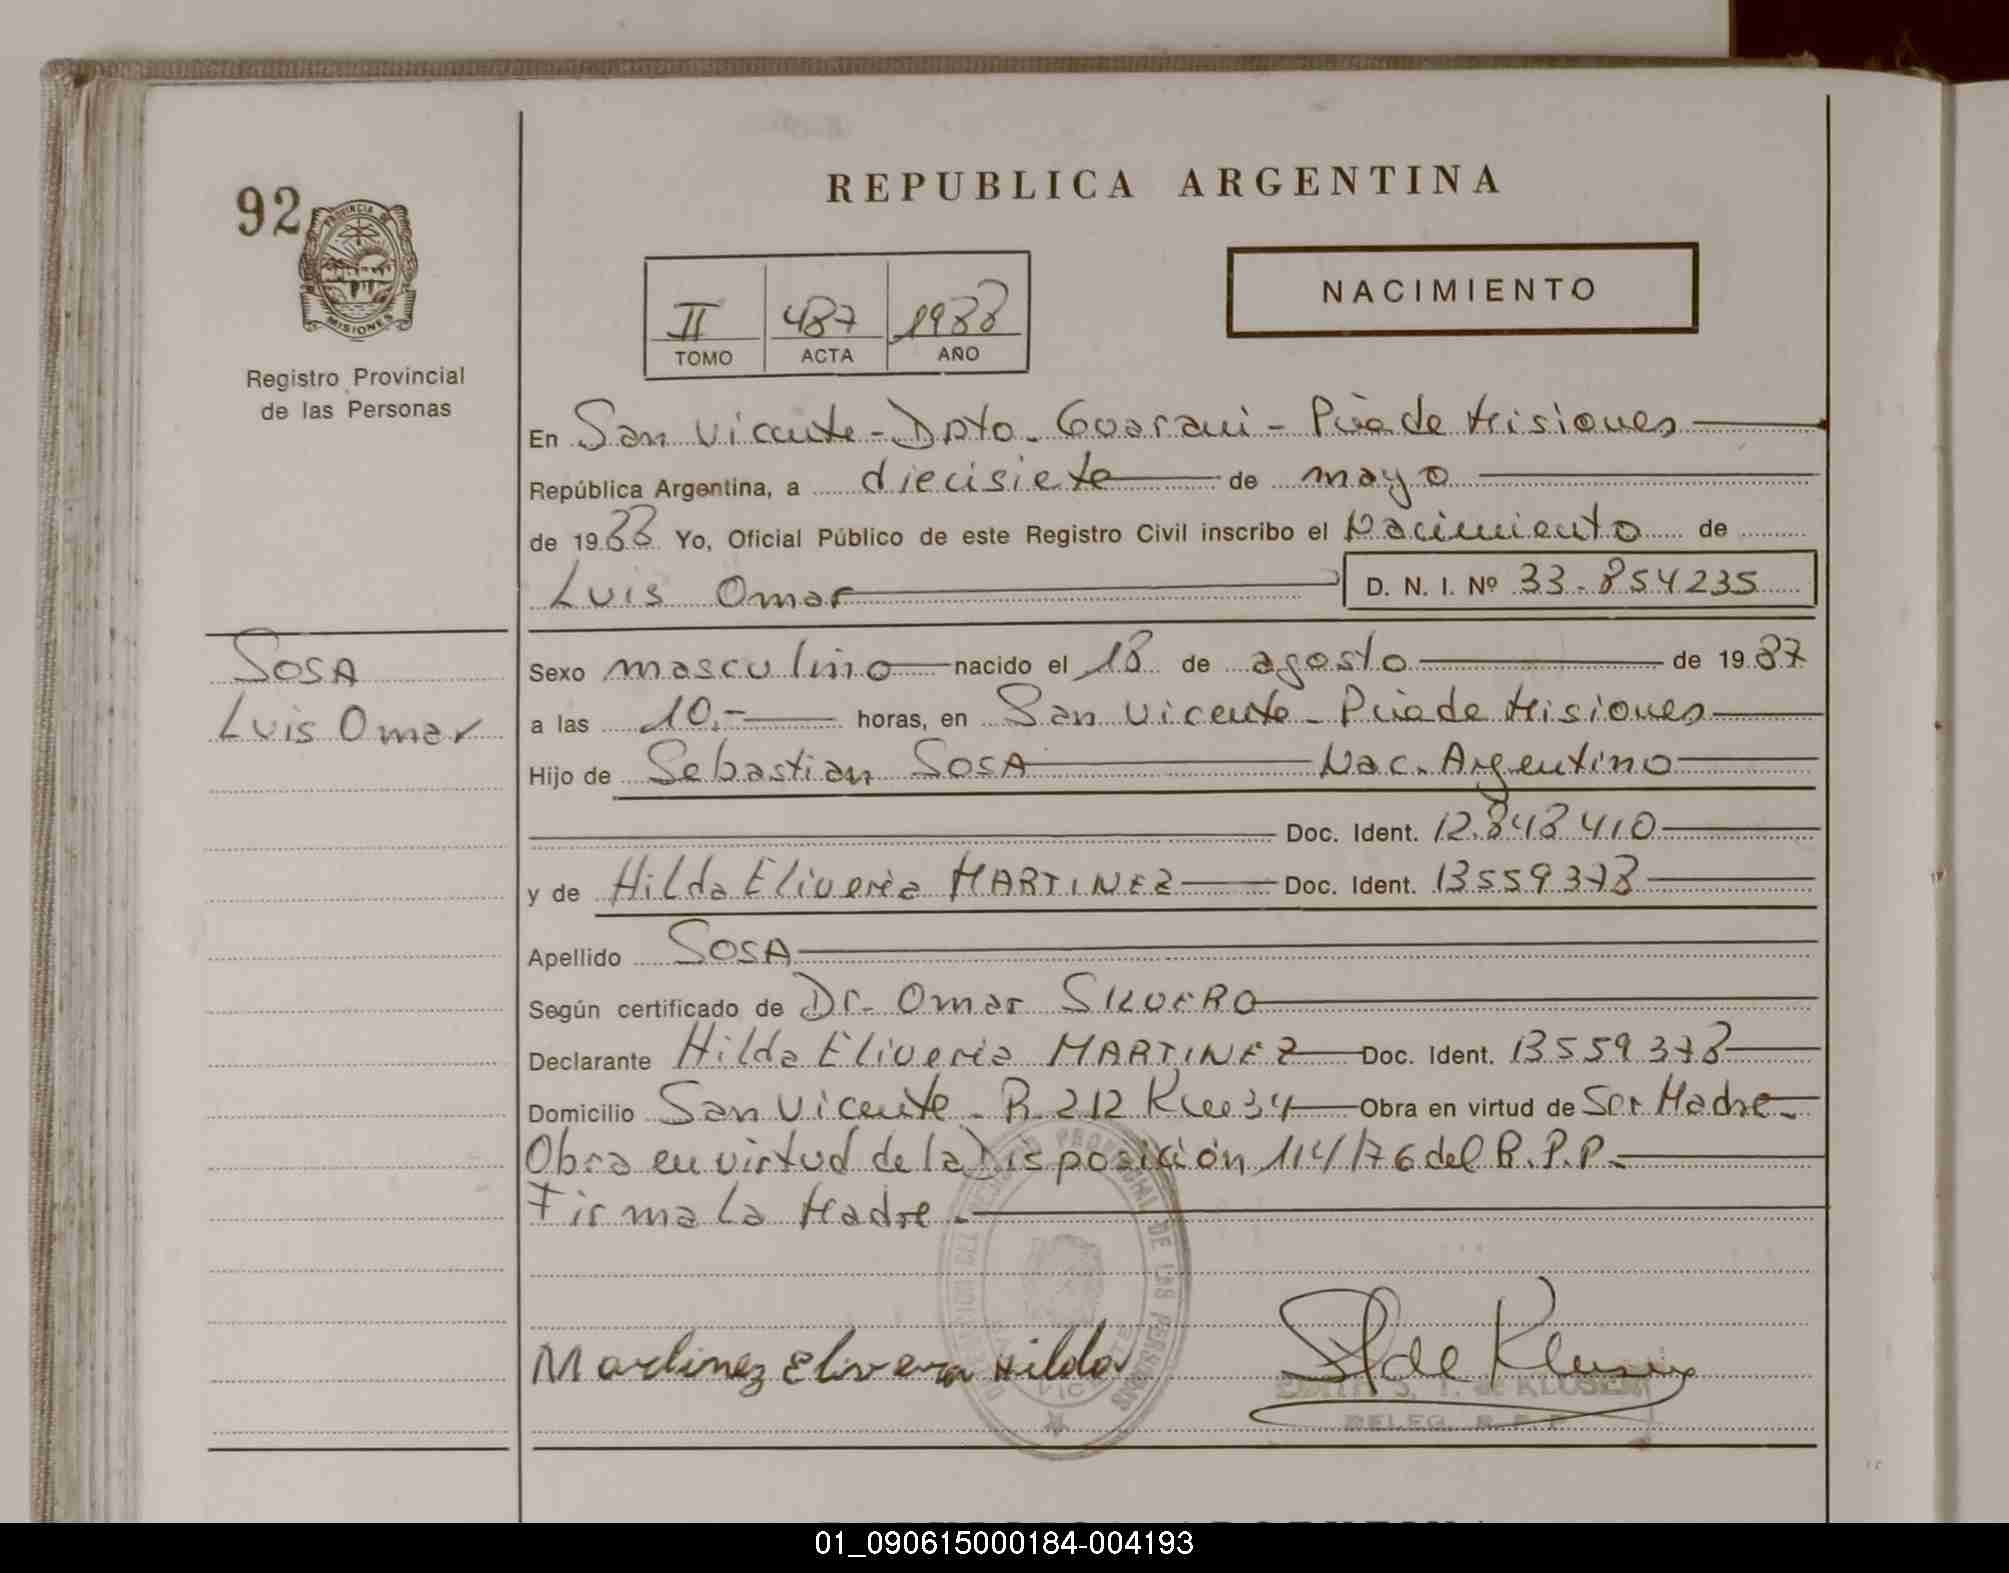 REPUBLICA ARGENTINA
92
PROVINCIA DE
MISIONES
Registro Provincial
de las Personas
NACIMIENTO
II 487 1988
TOMO ACTA AÑO
En San Vicente - Dpto. Guarani - Pcia de Misiones
República Argentina, a diecisiete de mayo
de 1988 Yo, Oficial Público de este Registro Civil inscribo el Nacimiento de
Luis Omar D. N. I. Nº 33.854235
SOSA
Luis Omar
Sexo masculino nacido el 18 de agosto de 1987
a las 10.- horas, en San Vicente - Pcia de Misiones
Hijo de Sebastian SOSA Nac. Argentino
Doc. Ident. 12.848410
y de Hilda Eliveria MARTINEZ Doc. Ident. 13559378
Apellido SOSA
Según certificado de Dr. Omar SILVERO
Declarante Hilda Eliveria MARTINEZ Doc. Ident. 13559378
Domicilio San Vicente - R. 212 Km 34 Obra en virtud de Ser Madre.
Obra en virtud de la Disposición 114/76 del R.P.P.
Firma la Madre.
Martinez Elivera Hilda
S. T. de KLUSEN
DELEG. R. P. P.
01_090615000184-004193